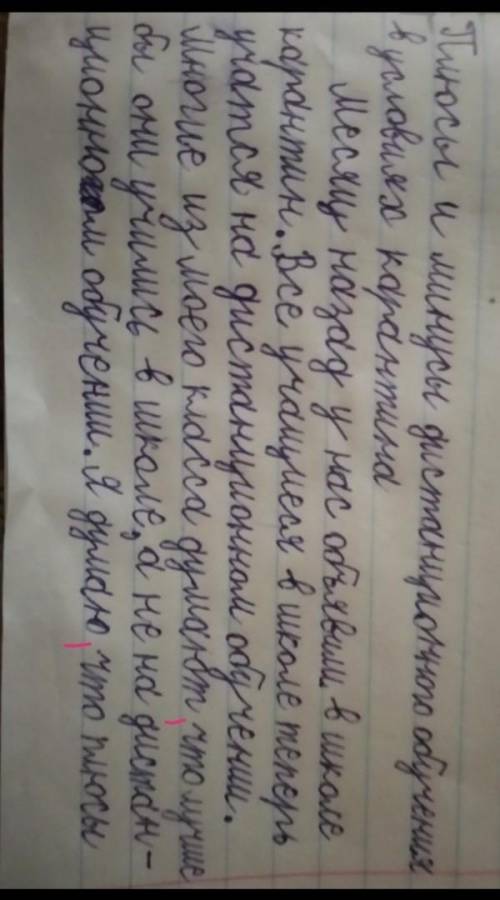 Плюсы и минусы дистанционного обучения
в условиях карантина
Месяц назад у нас объявили в школе
карантин. Все учащиеся в школе теперь
учатся на дистанционном обучении.
Многие из моего класса думают, что лучше
бы они учились в школе, а не на дистан-
ционном обучении. Я думаю, что плюсы